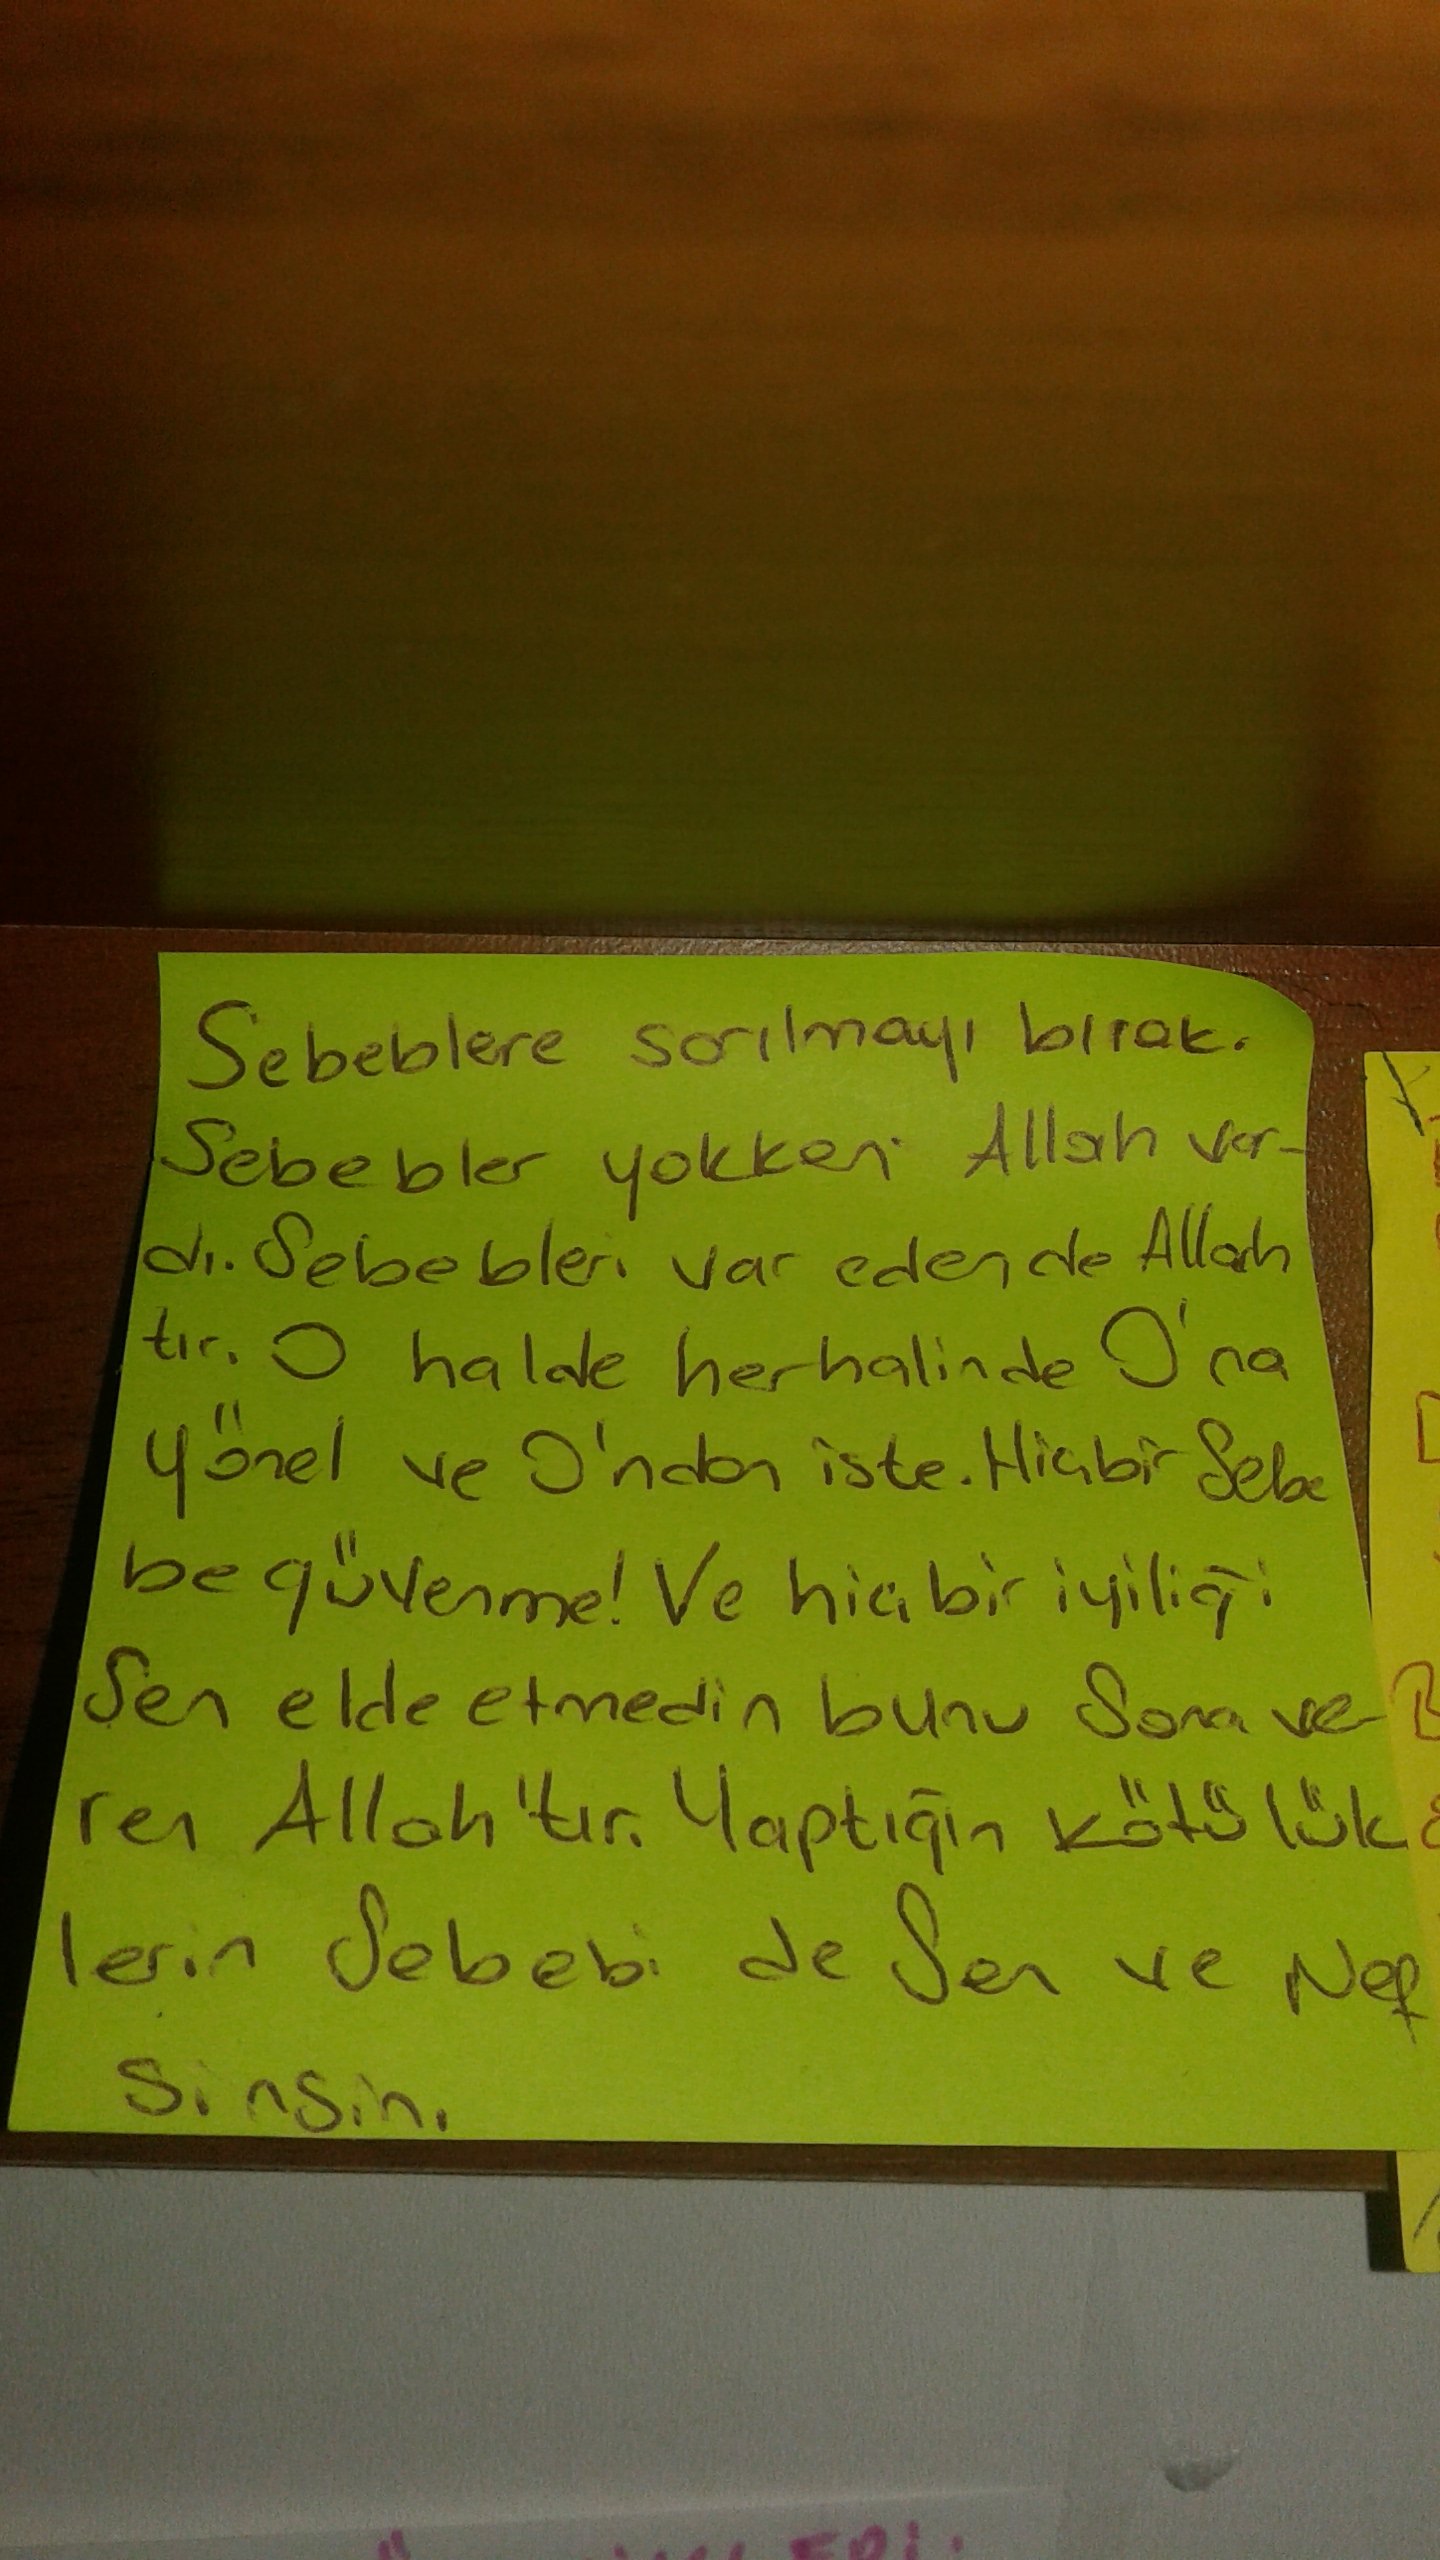 Sebeblere sarılmayı bırak.
Sebebler yokken Allah var-
dı. Sebebleri var eden de Allah
tır. O halde her halinde O'na
yönel ve O'ndan iste. Hiçbir Sebe
be güvenme! Ve hiçbir iyiliği
Sen elde etmedin bunu Sana ve
ren Allah'tır. Yaptığın kötülük
lerin Sebebi de Sen ve Nef
sinsin.